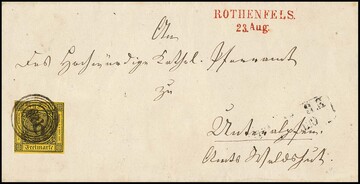 ROTHENFELS.
23. Aug.
An
Das Hochwürdige Kathol. Pfarramt
zu
Unteralpfen.
Amts Waldshut.
Freimarke